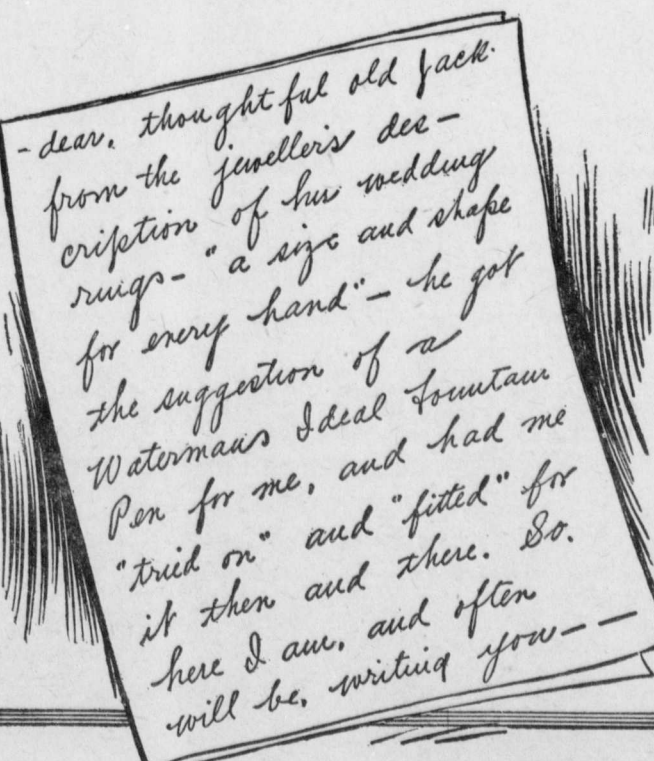 - dear, thoughtful old Jack.
from the jeweller's des-
cription of his wedding
rings - "a size and shape
for every hand" - he got
the suggestion of a
Watermans Ideal Fountain
Pen for me, and had me
"tried on" and "fitted" for
it then and there. So.
here I am, and often
will be, writing you - -